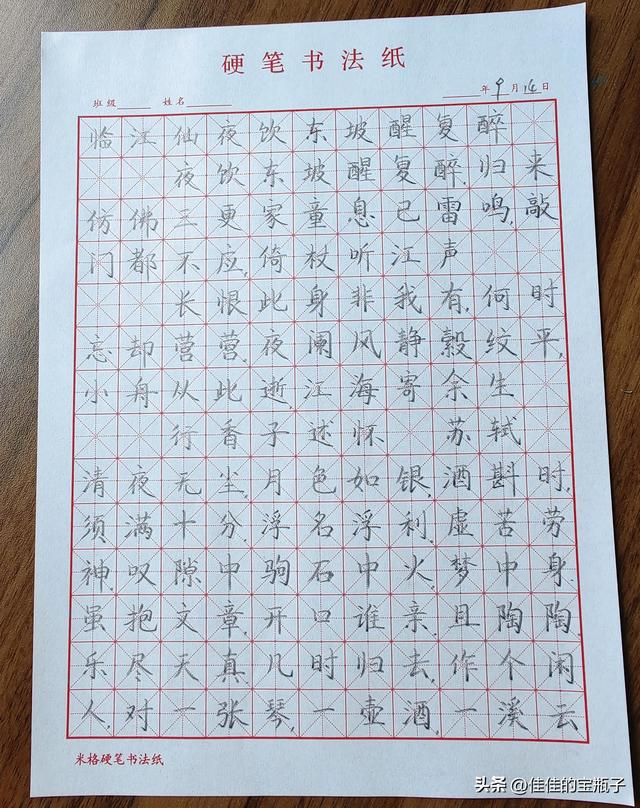 硬笔书法纸
班级 姓名 年9月14日
临江仙夜饮东坡醒复醉
夜饮东坡醒复醉,归来
仿佛三更家童息已雷鸣,敲
门都不应,倚杖听江声
长恨此身非我有,何时
忘却营营,夜阑风静縠纹平,
小舟从此逝,江海寄余生
行香子述怀 苏轼
清夜无尘,月色如银,酒斟时,
须满十分,浮名浮利,虚苦劳
神,叹隙中驹石中火,梦中身,
虽抱文章,开口谁亲,且陶陶,
乐尽天真,几时归去,作个闲
人,对一张琴,一壶酒,一溪云
米格硬笔书法纸
头条@佳佳的宝瓶子